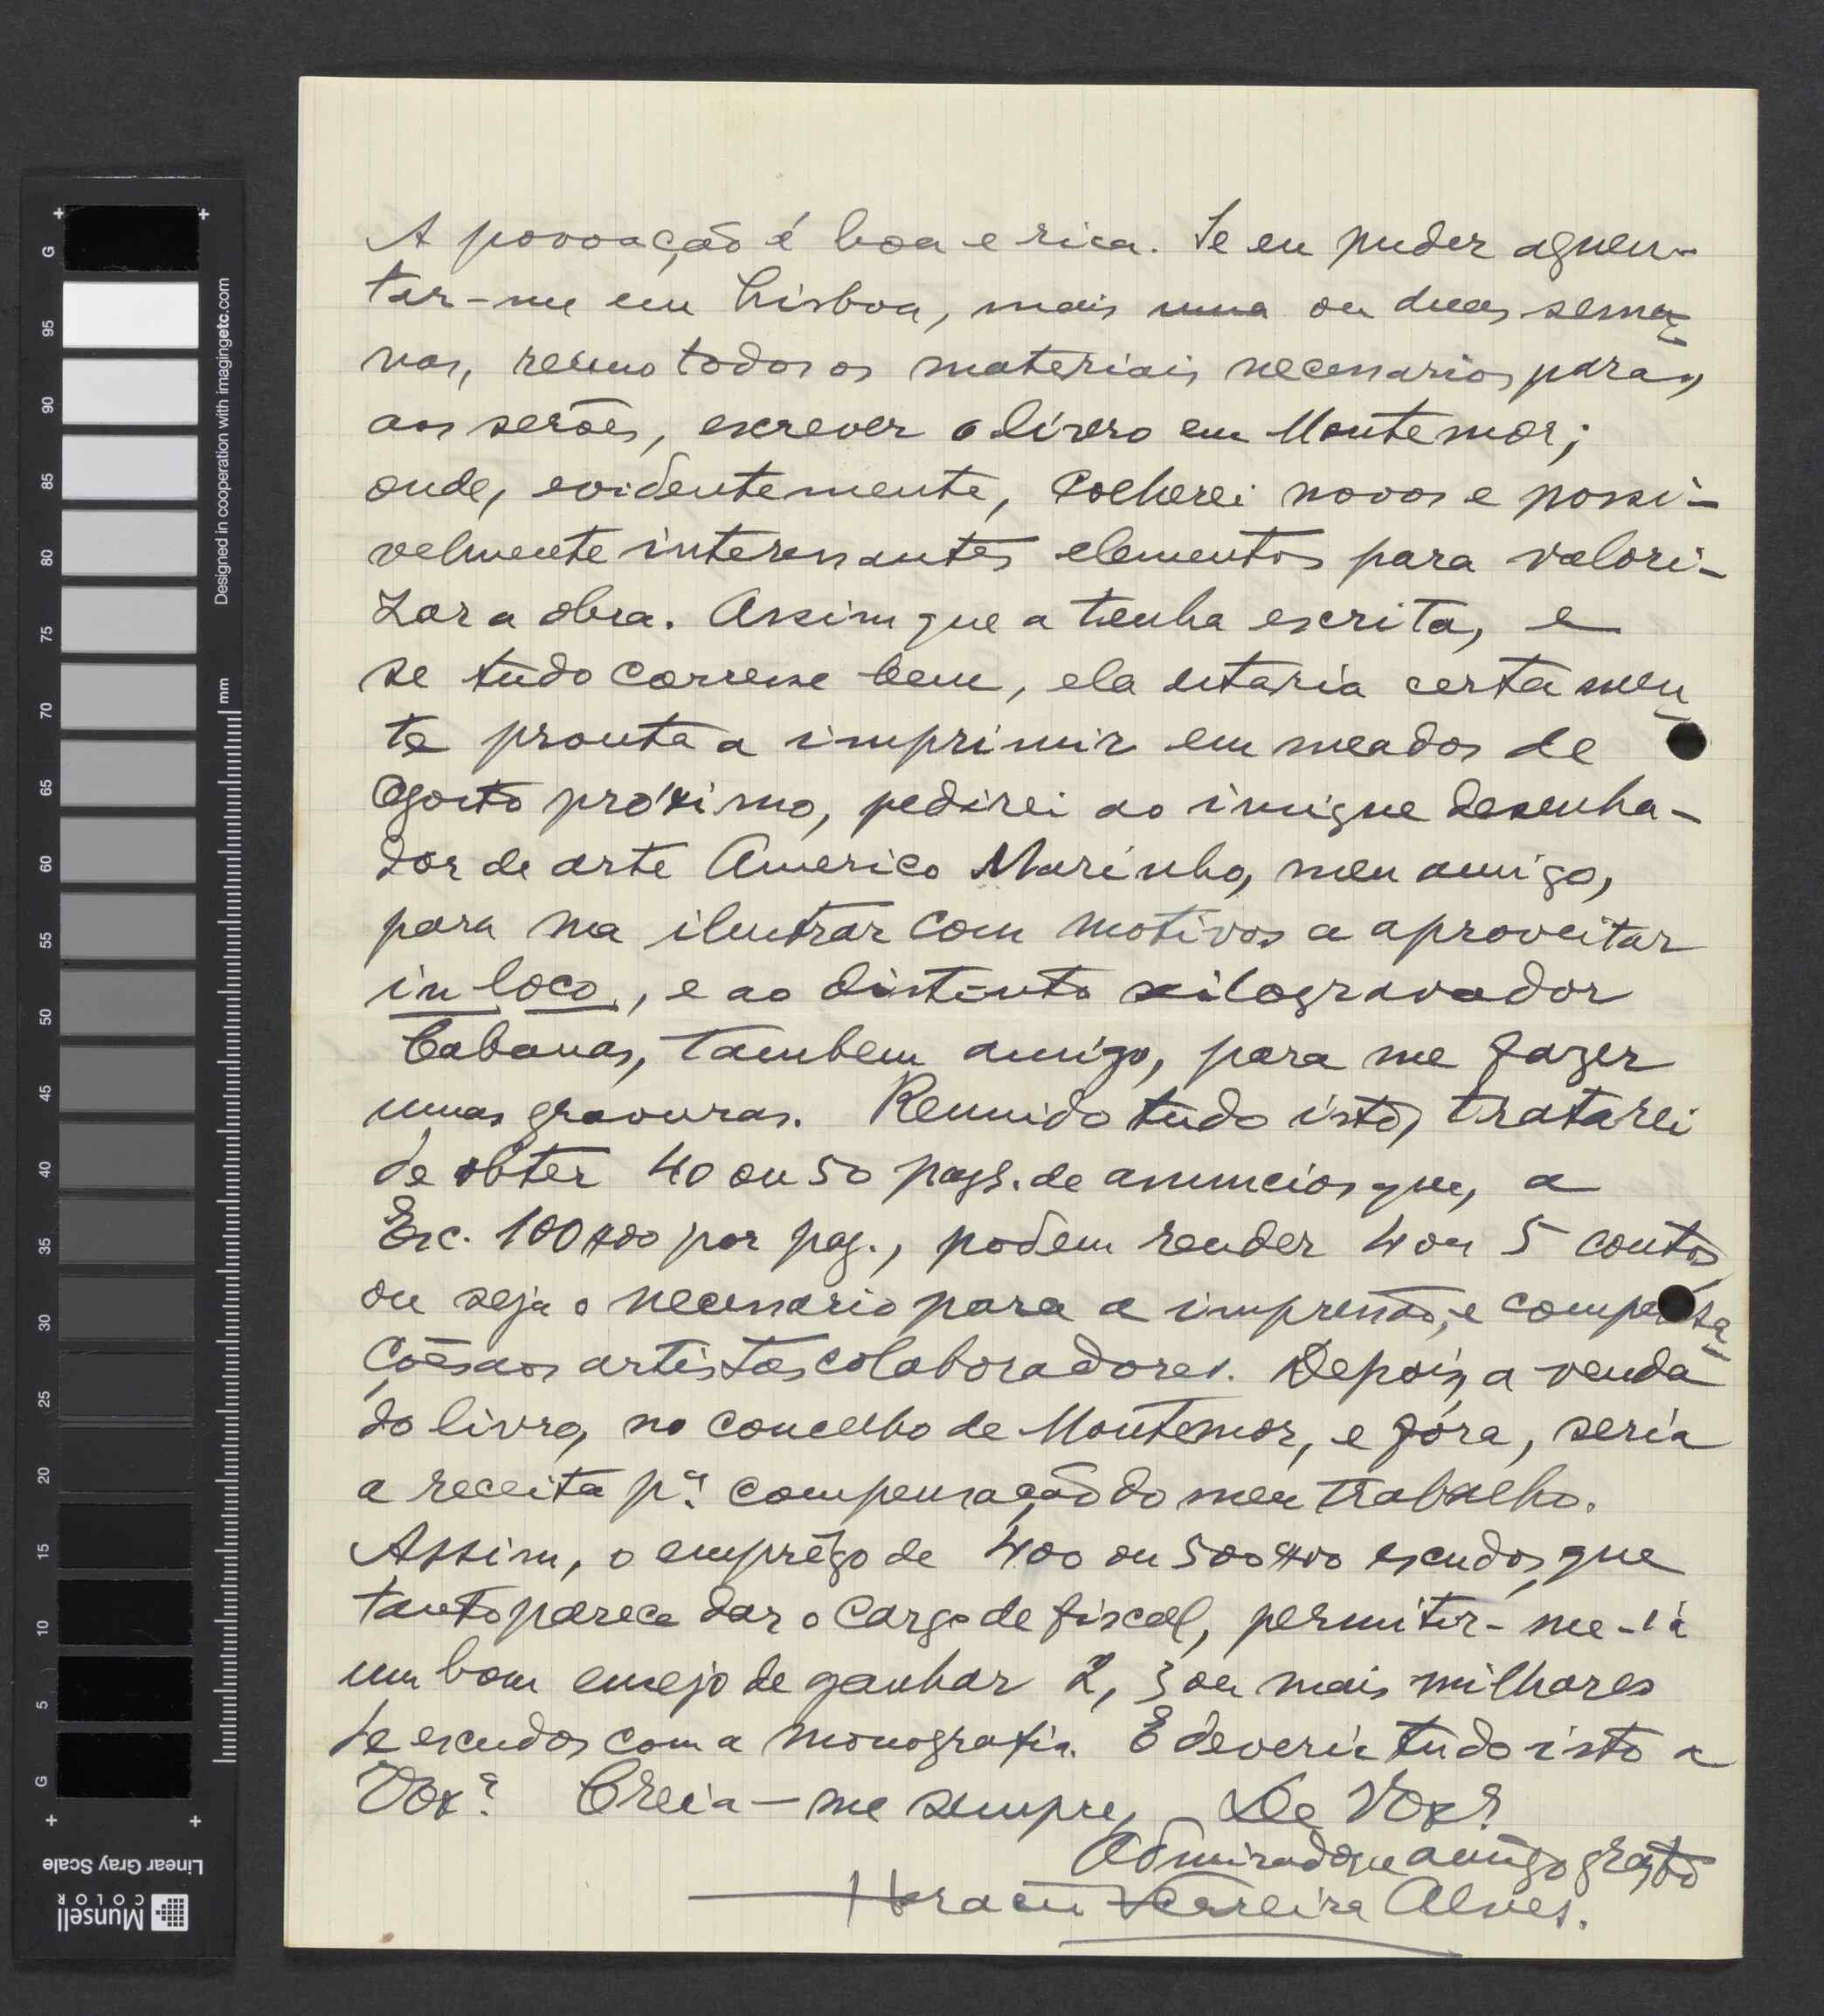 A povoação é boa e rica. Se eu puder aguen-
tar-me em Lisboa, mais uma ou duas sema-
nas, reuno todos os materiais necessarios para,
aos serões, escrever o livro em Montemor;
onde, evidentemente, colherei novos e possi-
velmente interessantes elementos para valori-
zar a obra. Assim que a tenha escrita, e
se tudo corresse bem, ela estaria certamen-
te pronta a imprimir em meados de
Agosto próximo, pedirei ao insigne desenha-
dor de arte Americo Marinho, meu amigo,
para ma ilustrar com motivos a aproveitar
in loco, e ao distinto xilogravador
Cabanas, tambem amigo, para me fazer
umas gravuras. Reunido tudo isto, tratarei
de obter 40 ou 50 pags. de anuncios que, a
Esc. 100$00 por pag., podem render 4 ou 5 contos,
ou seja o necessario para a impressão, e compensa-
ções aos artistas colaboradores. Depois, a venda
do livro, no concelho de Montemor, e fóra, seria
a receita pª compensação do meu trabalho.
Assim, o emprêgo de 400 ou 500$00 escudos, que
tanto parece dar o cargo de fiscal, permitir-me-ia
um bom ensejo de ganhar 2, 3 ou mais milhares
de escudos com a monografia. E deveria tudo isto a
V. Exª Creia-me sempre, De V. Exª
Admirador e amigo grato
Ferreira Alves.
Designed in cooperation with imagingetc.com
mm
G
95
90
85
80
75
70
65
60
55
50
45
40
35
30
25
20
15
10
5
G
Linear Gray Scale
Munsell
COLOR